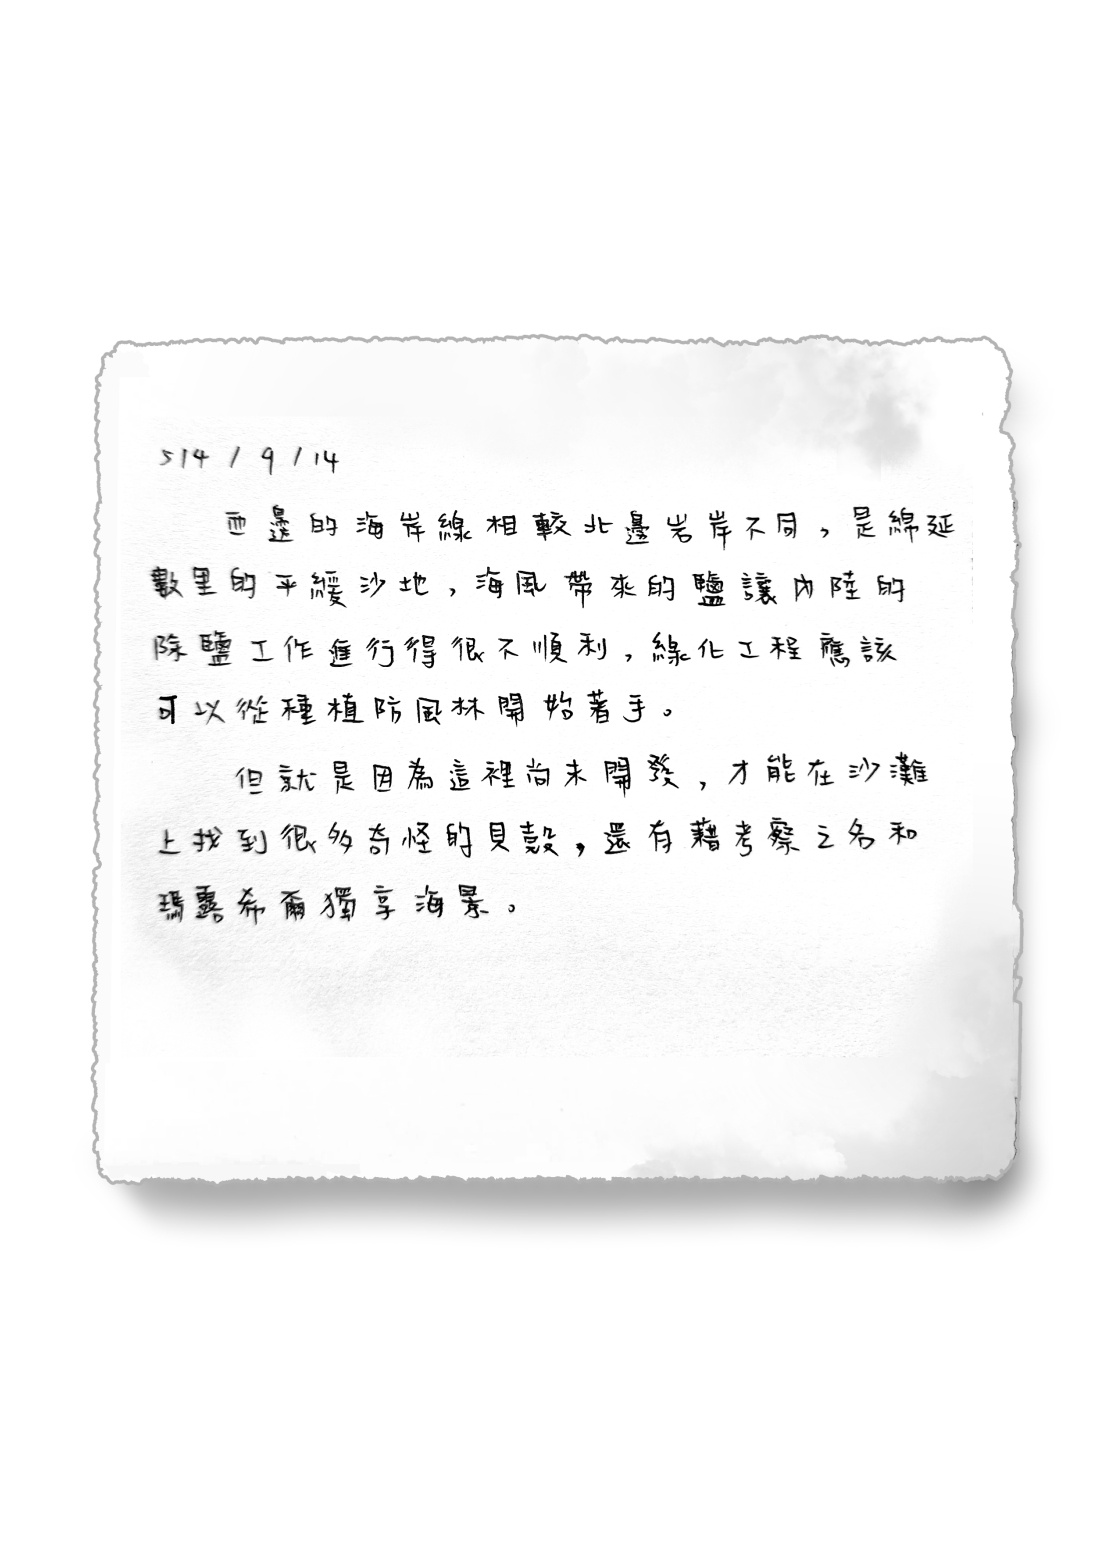 514/9/14
西邊的海岸線相較北邊岩岸不同，是綿延
數里的平緩沙地，海風帶來的鹽讓內陸的
除鹽工作進行得很不順利，綠化工程應該
可以從種植防風林開始著手。
但就是因為這裡尚未開發，才能在沙灘
上找到很多奇怪的貝殼，還有藉考察之名和
瑪露希爾獨享海景。